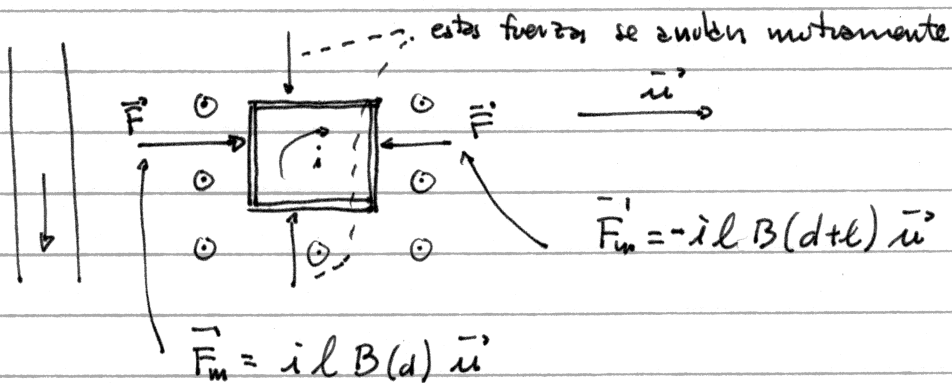 estas fuerzas se anulan mutuamente
u
F
F
i
Fm = -i l B(d+l) u
Fm = i l B(d) u